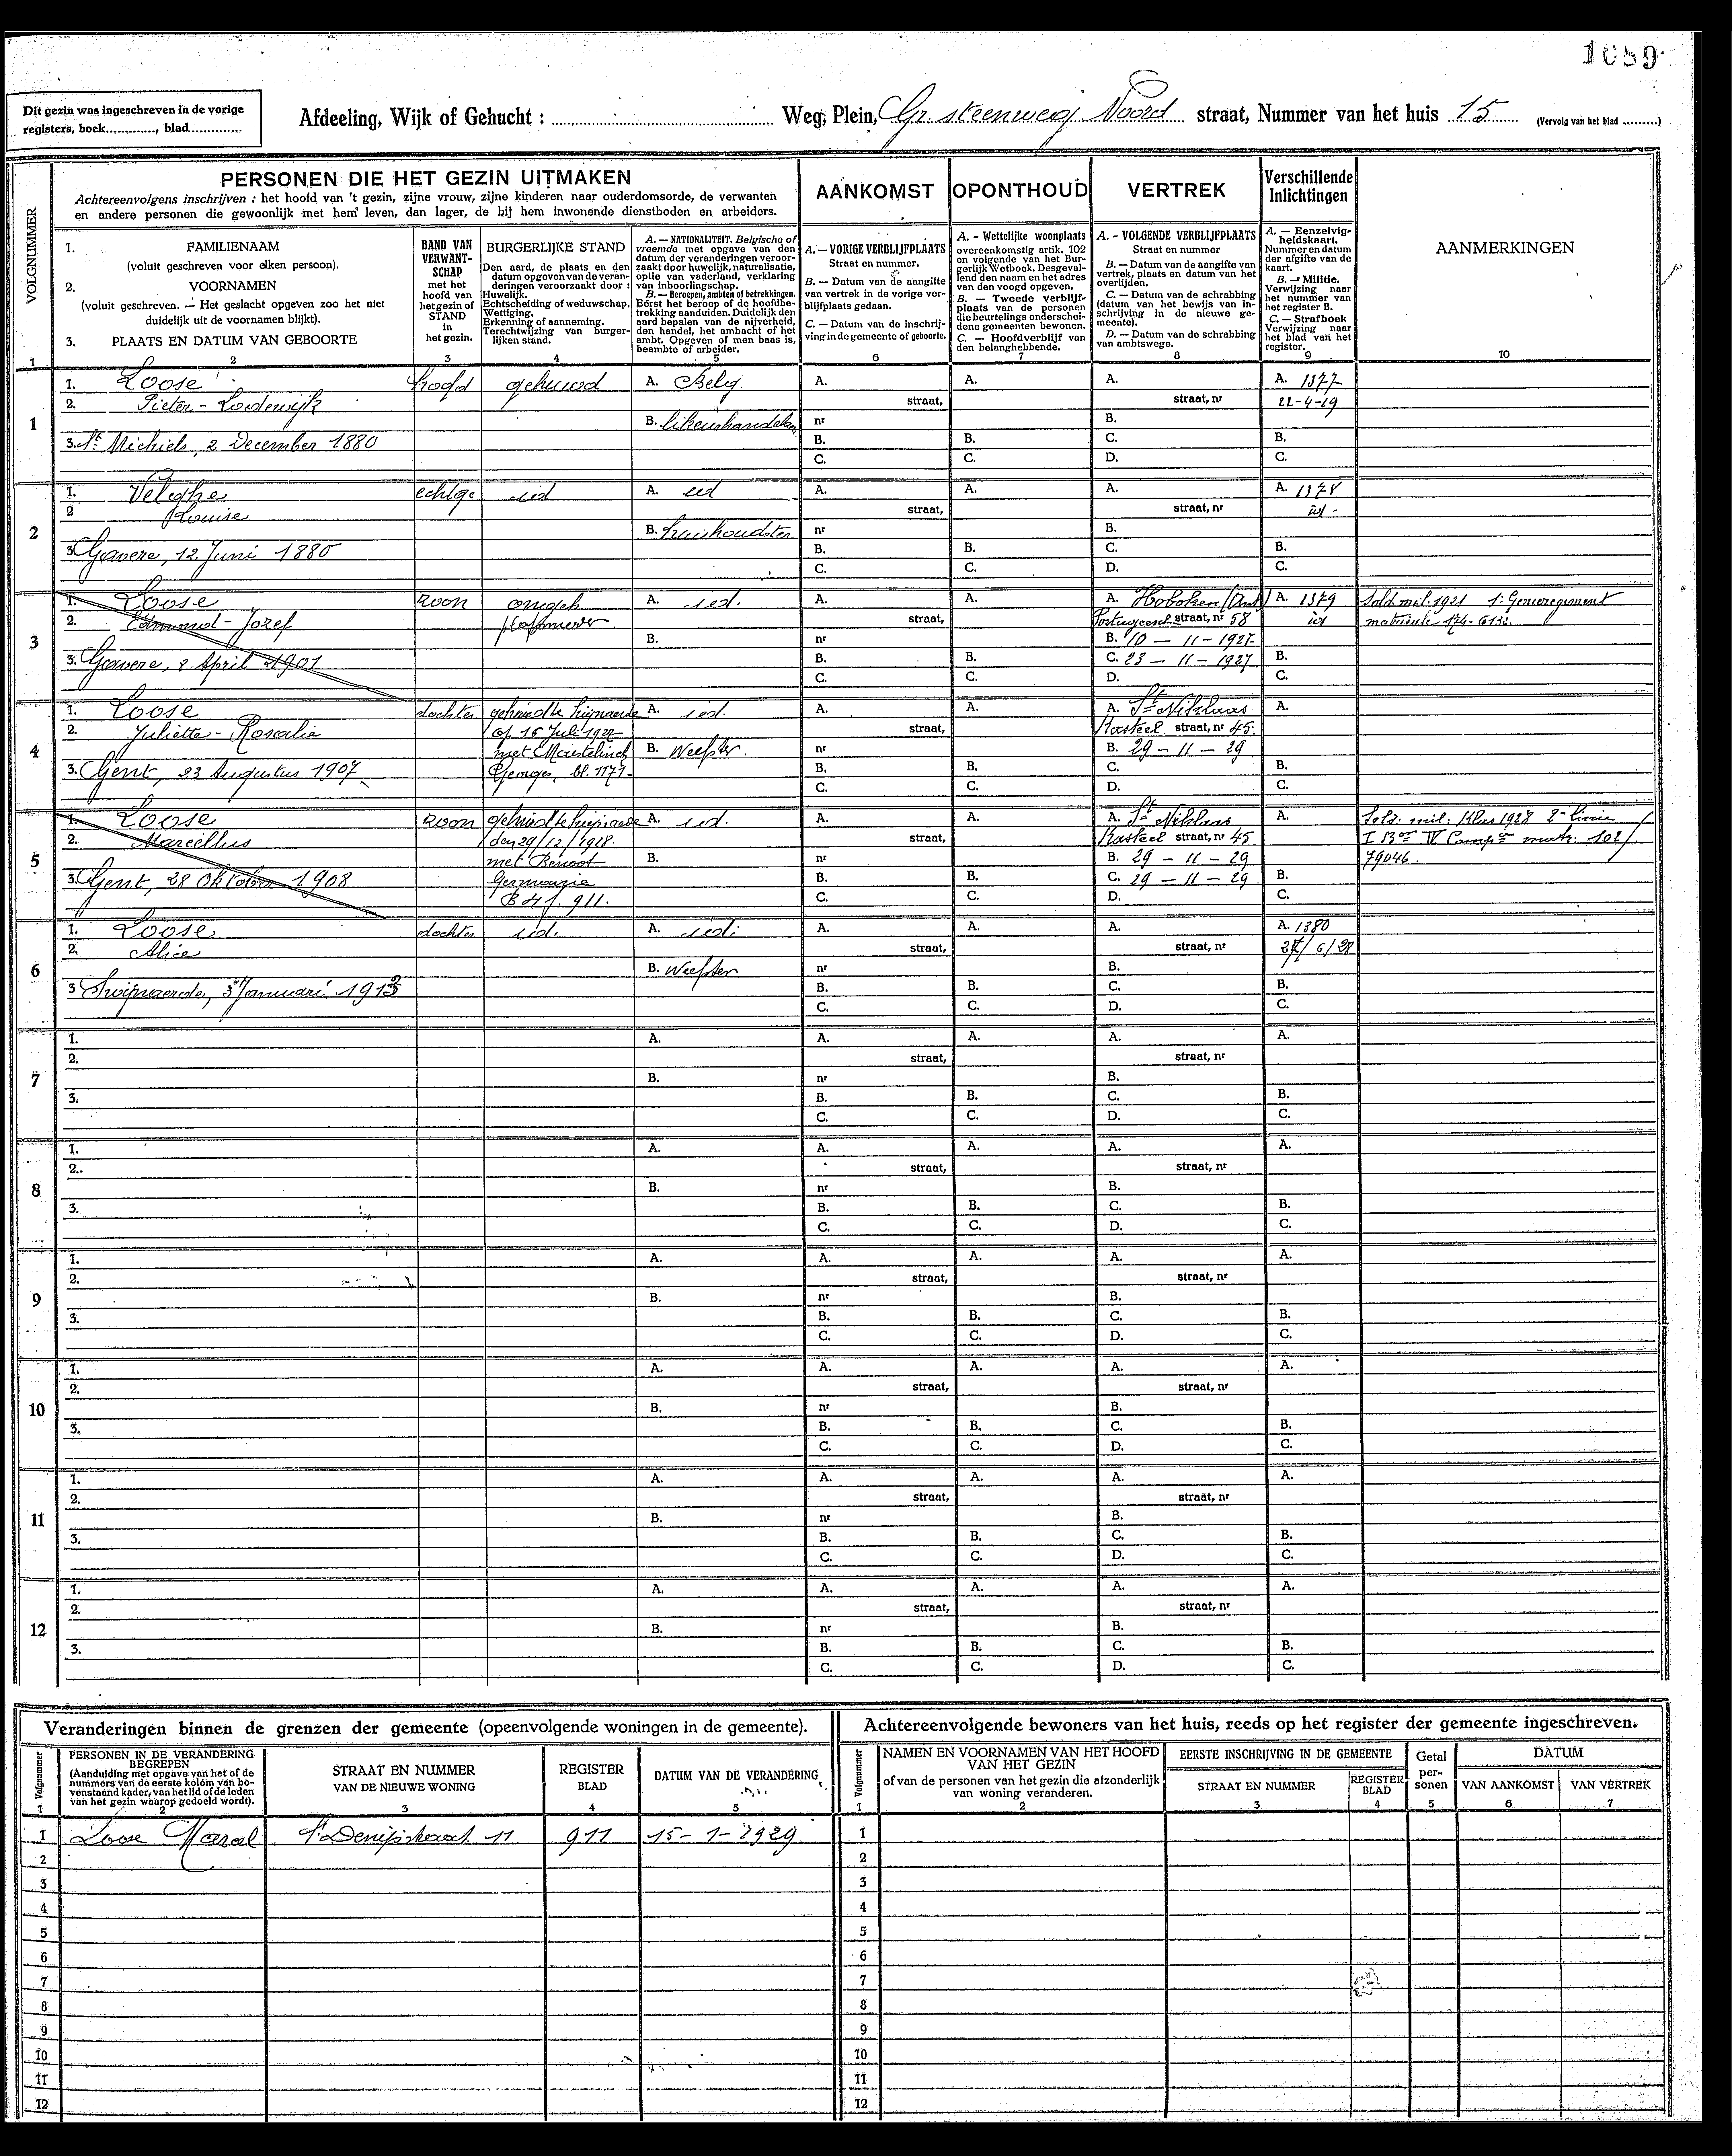 1059
Dit gezin was ingeschreven in de vorige
registers, boek............, blad.............
Afdeeling, Wijk of Gehucht : ........................ Weg, Plein, Gr. steenweg Noord straat, Nummer van het huis 15 (Vervolg van het blad .........)
VOLGNUMMER
PERSONEN DIE HET GEZIN UITMAKEN
Achtereenvolgens inschrijven : het hoofd van 't gezin, zijne vrouw, zijne kinderen naar ouderdomsorde, de verwanten
en andere personen die gewoonlijk met hem leven, dan lager, de bij hem inwonende dienstboden en arbeiders.
AANKOMST
OPONTHOUD
VERTREK
Verschillende
Inlichtingen
AANMERKINGEN
1. FAMILIENAAM
(voluit geschreven voor elken persoon).
2. VOORNAMEN
(voluit geschreven. — Het geslacht opgeven zoo het niet
duidelijk uit de voornamen blijkt).
3. PLAATS EN DATUM VAN GEBOORTE
BAND VAN
VERWANT-
SCHAP
met het
hoofd van
het gezin of
STAND
in
het gezin.
BURGERLIJKE STAND
Den aard, de plaats en den
datum opgeven van de veran-
deringen veroorzaakt door :
Huwelijk.
Echtscheiding of weduwschap.
Wettiging.
Erkenning of aanneming.
Terechtwijzing van burger-
lijken stand.
A. — NATIONALITEIT. Belgische of
vreemde met opgave van den
datum der veranderingen veroor-
zaakt door huwelijk, naturalisatie,
optie van vaderland, verklaring
van inboorlingschap.
B. — Beroepen, ambten of betrekkingen.
Eerst het beroep of de hoofdbe-
trekking aanduiden. Duidelijk den
aard bepalen van de nijverheid,
den handel, het ambacht of het
ambt. Opgeven of men baas is,
beambte of arbeider.
A. — VORIGE VERBLIJFPLAATS
Straat en nummer.
B. — Datum van de aangifte
van vertrek in de vorige ver-
blijfplaats gedaan.
C. — Datum van de inschrij-
ving in de gemeente of geboorte.
A. - Wettelijke woonplaats
overeenkomstig artik. 102
en volgende van het Bur-
gerlijk Wetboek. Desgeval-
lend den naam en het adres
van den voogd opgeven.
B. — Tweede verblijf-
plaats van de personen
die beurtelings onderschei-
dene gemeenten bewonen.
C. — Hoofdverblijf van
den belanghebbende.
A. - VOLGENDE VERBLIJFPLAATS
Straat en nummer
B. — Datum van de aangifte van
vertrek, plaats en datum van het
overlijden.
C. — Datum van de schrabbing
(datum van het bewijs van in-
schrijving in de nieuwe ge-
meente).
D. — Datum van de schrabbing
van ambtswege.
A. — Eenzelvig-
heidskaart.
Nummer en datum
der afgifte van de
kaart.
B. — Militie.
Verwijzing naar
het nummer van
het register B.
C. — Strafboek
Verwijzing naar
het blad van het
register.
1 2 3 4 5 6 7 8 9 10
1. Loose hoofd gehuwd A. Belg A. A. A. A. 1377
2. Pieter - Lodewijk straat, straat, nr 22-4-19
1 B. nr B.
3. St Michiels, 2 December 1880 B. B. C. B.
C. C. D. C.
1. Velghe echtge id A. id A. A. A. A. 1378
2 Louise straat, straat, nr id.
2 B. huishoudster nr B.
3. Gavere, 12 Juni 1880 B. B. C. B.
C. C. D. C.
1. Loose zoon ongeh A. id. A. A. A. Hoboken (Ant) A. 1379 Sold. mil. 1921 1e Genieregiment
2. Edmond - Jozef straat, straat, nr 58 id
3 B. nr B. 10 — 11 — 1927
3. Gavere, 8 April 1901 B. B. C. 23 — 11 — 1927 B.
C. C. D. C.
1. Loose dochter A. id. A. A. A. St Niklaas A.
2. Juliette - Rosalie op 16 Juli 1927 straat, Kasteel straat, nr 45.
4 met Georges, bl. 1171. B. Weefster. nr B. 29 — 11 — 29
3. Gent, 23 Augustus 1907 B. B. C. B.
C. C. D. C.
1. Loose zoon A. id. A. A. A. St Niklaas A. Sold. mil. Klas 1928 2e linie
2. Marcellus den 29/12/1928. straat, Kasteel straat, nr 45 102/
5 met Benoot B. nr B. 29 — 11 — 29 79046.
3. Gent, 28 Oktober 1908 Germanie B. B. C. 29 — 11 — 29 B.
B 4 f. 911. C. C. D. C.
1. Loose dochter id. A. id. A. A. A. A. 1380
2. Alice straat, straat, nr
6 B. Weefster nr B.
3 Swijnaerde, 3 Januari 1913 B. B. C. B.
C. C. D. C.
1. A. A. A. A. A.
2. straat, straat, nr
7 B. nr B.
3. B. B. C. B.
C. C. D. C.
1. A. A. A. A. A.
2. straat, straat, nr
8 B. nr B.
3. B. B. C. B.
C. C. D. C.
1. A. A. A. A. A.
2. straat, straat, nr
9 B. nr B.
3. B. B. C. B.
C. C. D. C.
1. A. A. A. A. A.
2. straat, straat, nr
10 B. nr B.
3. B. B. C. B.
C. C. D. C.
1. A. A. A. A. A.
2. straat, straat, nr
11 B. nr B.
3. B. B. C. B.
C. C. D. C.
1. A. A. A. A. A.
2. straat, straat, nr
12 B. nr B.
3. B. B. C. B.
C. C. D. C.
Veranderingen binnen de grenzen der gemeente (opeenvolgende woningen in de gemeente).
Volgnummer
PERSONEN IN DE VERANDERING
BEGREPEN
(Aanduiding met opgave van het of de
nummers van de eerste kolom van bo-
venstaand kader, van het lid of de leden
van het gezin waarop gedoeld wordt).
STRAAT EN NUMMER
VAN DE NIEUWE WONING
REGISTER
BLAD
DATUM VAN DE VERANDERING
1 2 3 4 5
1 Loose Marcel St Denijsstraat 11 911 15-1-1929
2
3
4
5
6
7
8
9
10
11
12
Achtereenvolgende bewoners van het huis, reeds op het register der gemeente ingeschreven.
Volgnummer
NAMEN EN VOORNAMEN VAN HET HOOFD
VAN HET GEZIN
of van de personen van het gezin die afzonderlijk
van woning veranderen.
EERSTE INSCHRIJVING IN DE GEMEENTE
STRAAT EN NUMMER
REGISTER
BLAD
Getal
per-
sonen
DATUM
VAN AANKOMST
VAN VERTREK
1 2 3 4 5 6 7
1
2
3
4
5
6
7
8
9
10
11
12